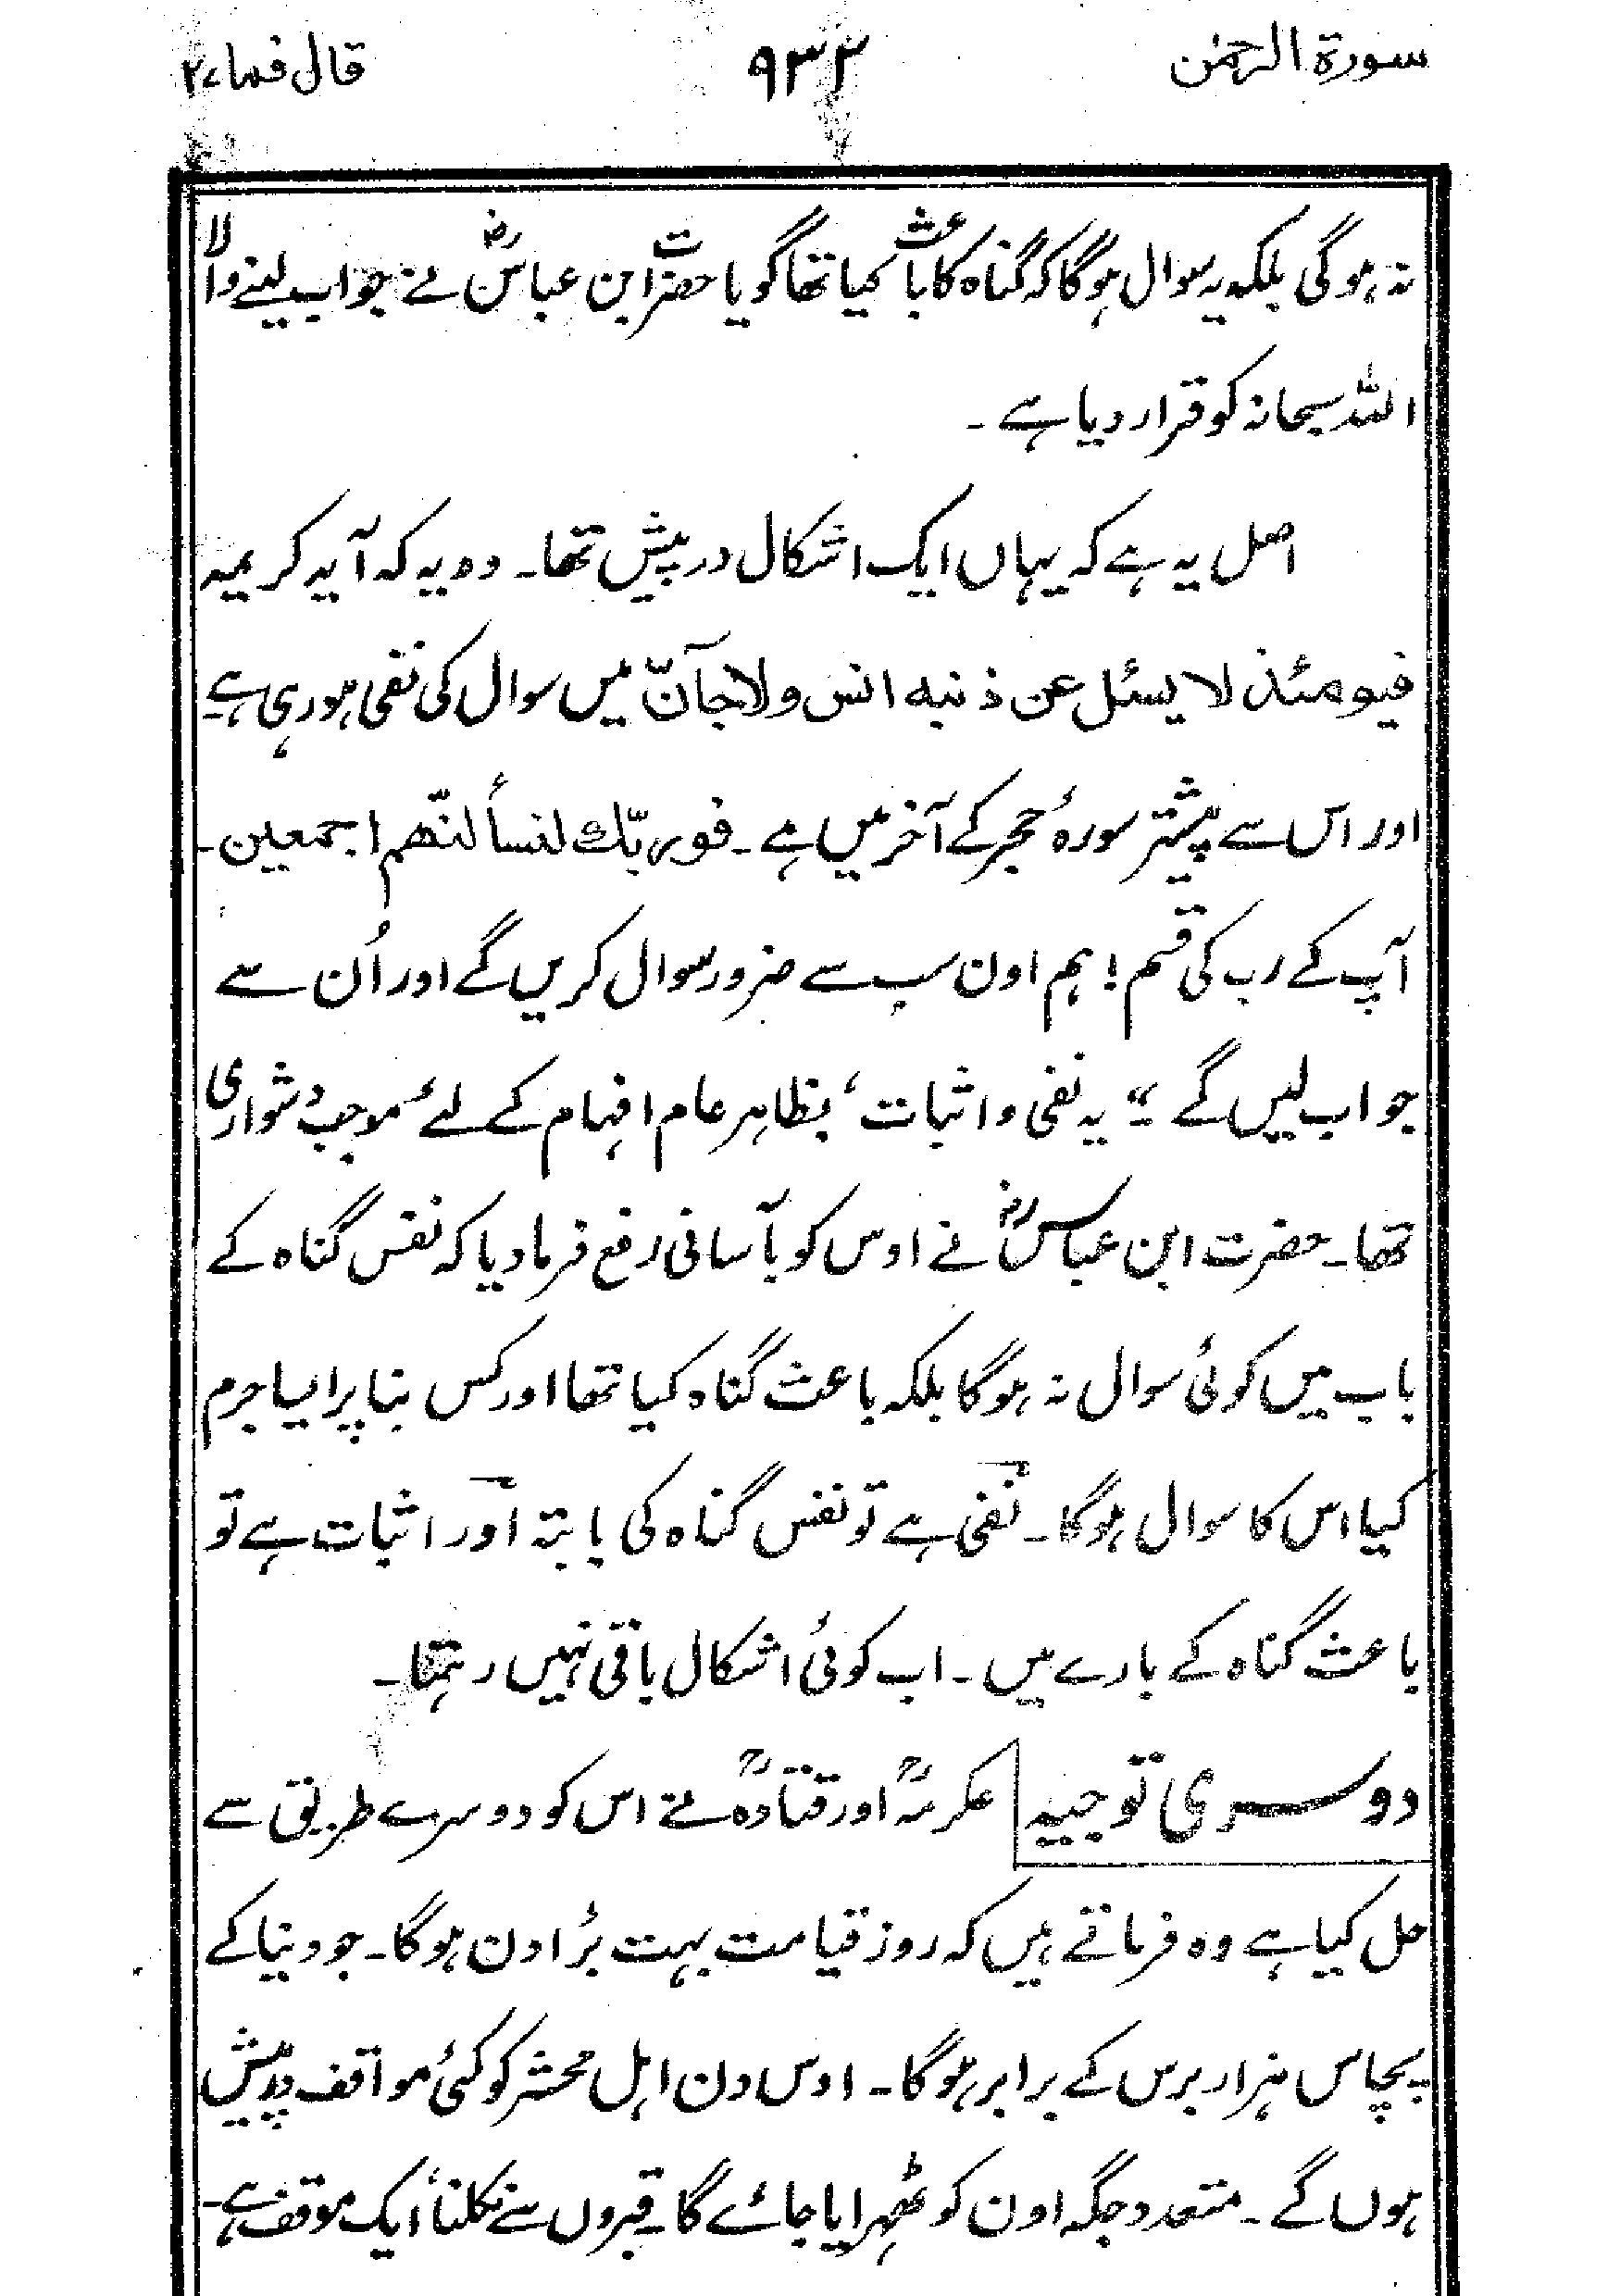 سورۃ الرحمٰن ۹۳۲ قال فما ۲۷
نہ ہوگی بلکہ یہ سوال ہوگا کہ گناہ کا باعث کیا تھا گویا حضرت ابن عباسؓ نے جواب لینے والا
اللہ سبحانہ کو قرار دیا ہے ۔
اصل یہ ہے کہ یہاں ایک اشکال درپیش تھا۔ وہ یہ کہ آیہ کریمہ
فیومئذ لا یسئل عن ذنبه انس ولا جآنّ میں سوال کی نفی ہورہی ہے
اور اس سے پیشتر سورۂ حجر کے آخر میں ہے ۔ فوربّك لنسألنّھم اجمعین ۔
آپ کے رب کی قسم ! ہم اون سب سے ضرور سوال کریں گے اور اُن سے
جواب لیں گے ۔" یہ نفی و اثبات ، بظاہر عام افہام کے لئے موجب دشواری
تھا ۔ حضرت ابن عباسؓ نے اوس کو بآسانی رفع فرما دیا کہ نفس گناہ کے
باب میں کوئی سوال نہ ہوگا بلکہ باعث گناہ کیا تھا اور کس بنا پر ایسا جرم
کیا اس کا سوال ہوگا ۔ نفی ہے تو نفس گناہ کی بابتہ اور اثبات ہے تو
باعث گناہ کے بارے میں ۔ اب کوئی اشکال باقی نہیں رہتا ۔
دوسری توجیہ عکرمہؒ اور قتادہؒ نے اس کو دوسرے طریق سے
حل کیا ہے وہ فرماتے ہیں کہ روز قیامت بہت بڑا دن ہوگا ۔ جو دنیا کے
پچاس ہزار برس کے برابر ہوگا ۔ اوس دن اہل محشر کو کئی مواقف درپیش
ہوں گے ۔ متعدد جگہ اون کو ٹھہرایا جائے گا ۔ قبروں سے نکلنا ایک موقف ہے ۔